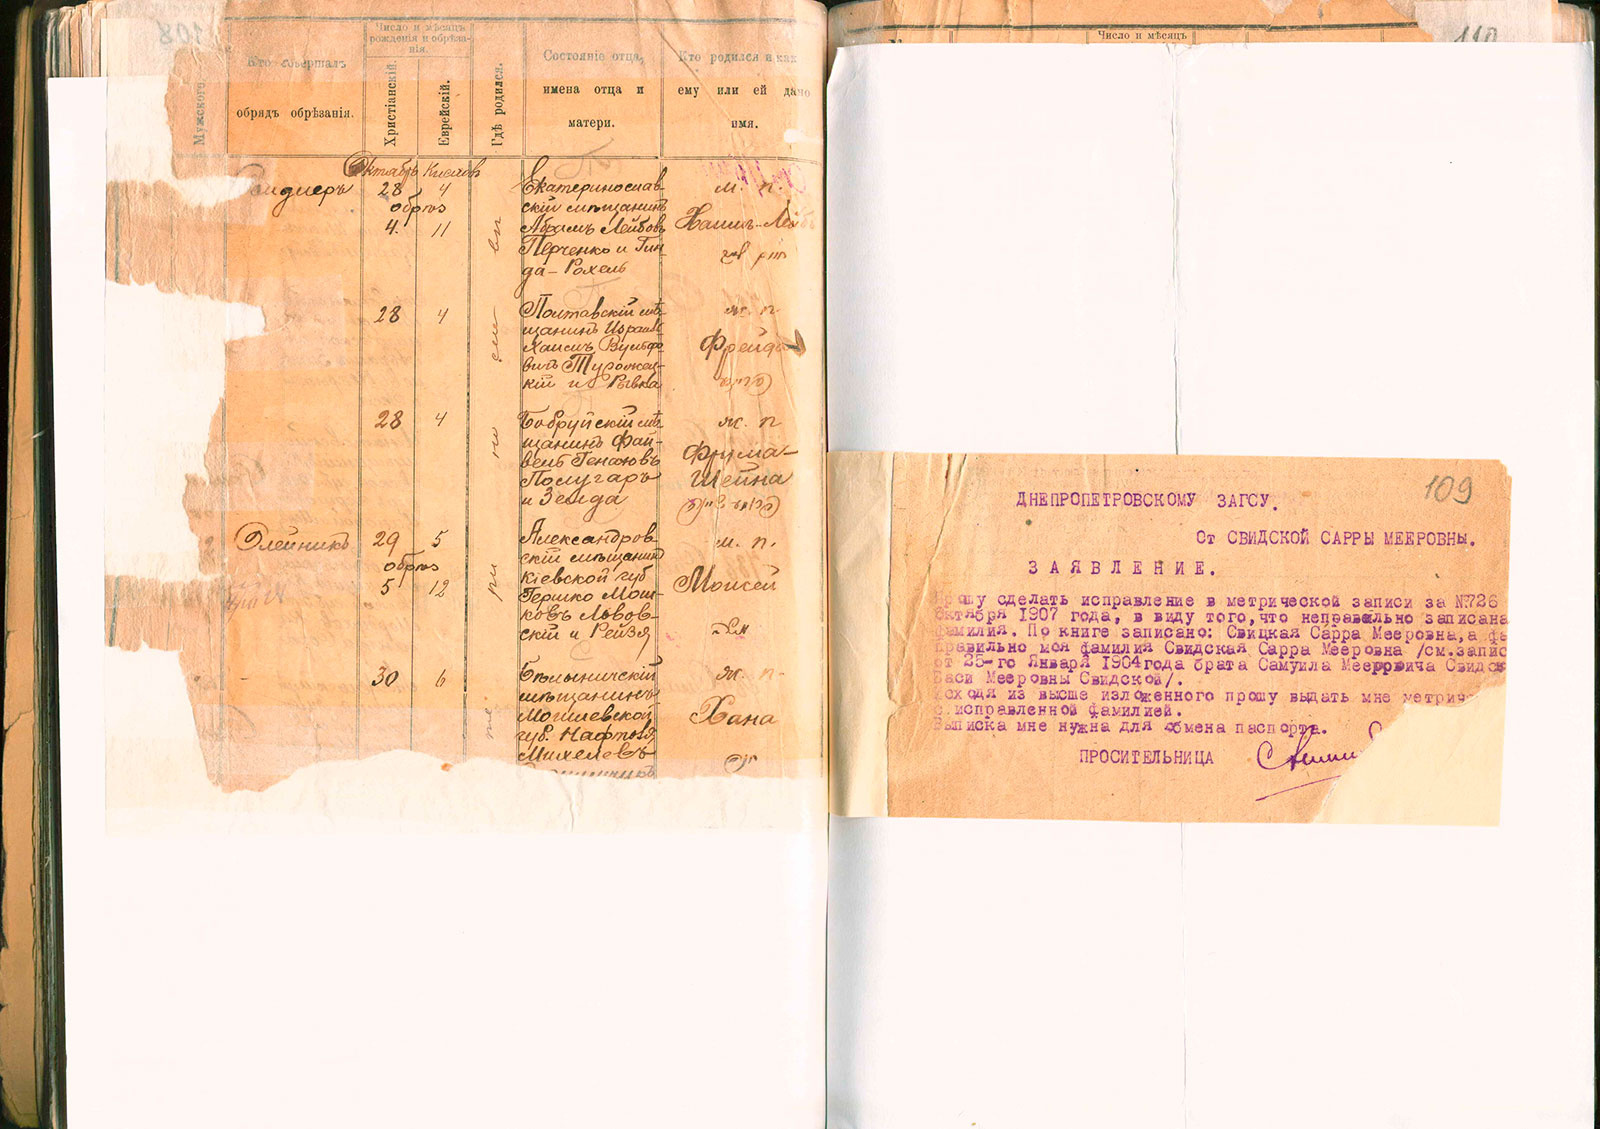 108
Мужского.
Кто совершалъ
обрядъ обрѣзанія.
Число и мѣсяцъ
рожденія и обрѣза-
нія.
Христіанскій.
Еврейскій.
Гдѣ родился.
Состояніе отца,
имена отца и
матери.
Кто родился и как
ему или ей дано
имя.
Октябрь Кислевъ
28 4
обрѣз
4. 11
Екатеринослав-
скій мѣщанинъ
Абрамъ Лейбовъ
Перченко и Гин-
да-Рохель
м. п.
Хаимъ-Лейбъ
28 4
Полтавскій мѣ-
щанинъ Израиль
Хаимъ Вульфо-
вичъ
кій и Рывка
ж. п
Фрейда
28 4
Бобруйскій мѣ-
щанинъ Фай-
вель
Послугаръ
и Зелда
ж. п
Фрума-
Шейна
Олейникъ
29 5
обрѣз
5 12
Александров-
скій мѣщанинъ
Кіевской губ
Гершко Мош-
ковъ Львов-
скій и Рейзя
м. п.
Моисей
30 6
Бѣлыничскій
мѣщанинъ
Могилевской
губ. Нафтоля
Михелевъ
ж. п.
Хана
Число и мѣсяцъ
110
109
ДНЕПРОПЕТРОВСКОМУ ЗАГСУ.
От СВИДСКОЙ САРРЫ МЕЕРОВНЫ.
ЗАЯВЛЕНИЕ.
Прошу сделать исправление в метрической записи за №726
Октября 1907 года, в виду того, что неправильно записана
фамилия. По книге записано: Свицкая Сарра Мееровна, а фа
правильно моя фамилия Свидская Сарра Мееровна /см.запис
от 25-го Января 1904года брата Самуила Мееровича Свидск
Баси Мееровны Свидской/.
Исходя из высше изложенного прошу выдать мне метрич
с исправленной фамилией.
Выписка мне нужна для обмена паспорта.
ПРОСИТЕЛЬНИЦА